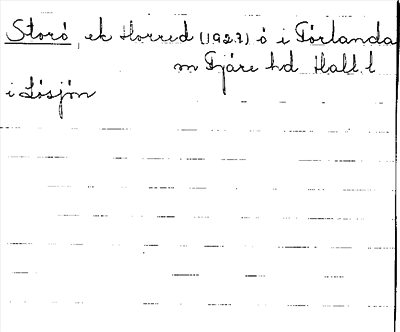 Storö, ek Horred (1927) ö i Förlanda
m Fjäre hd Hall. l
i Lösjön